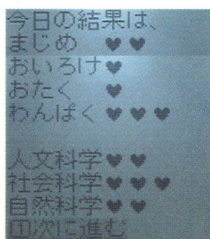 今日の結果は、
まじめ ♥♥
おいろけ♥
おたく ♥
わんぱく♥♥♥
人文科学♥♥
社会科学♥♥♥
自然科学♥♥
1次に進む